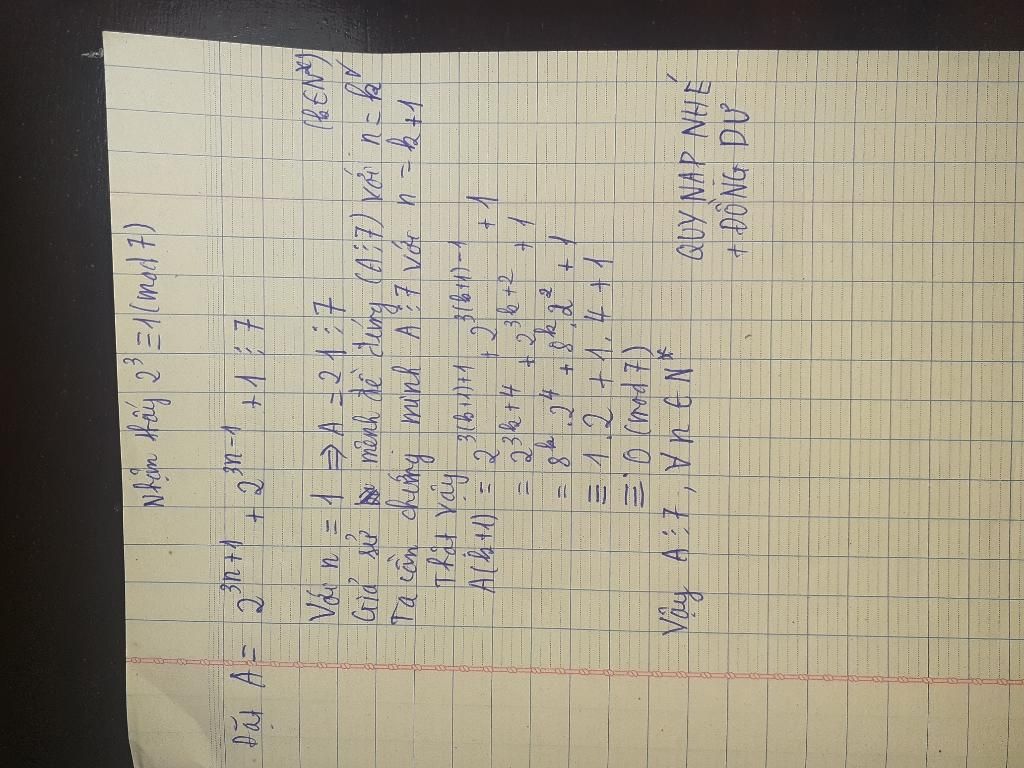 Nhận thấy 2³ ≡ 1 (mod 7)
Đặt A = 2³ⁿ⁺¹ + 2³ⁿ⁻¹ + 1 ⋮ 7
Với n = 1 ⇒ A = 21 ⋮ 7 (k ∈ N*)
Giả sử mệnh đề đúng (A ⋮ 7) với n = k
Ta cần chứng minh A ⋮ 7 với n = k + 1
Thật vậy
A(k+1) = 2^(3(k+1)+1) + 2^(3(k+1)-1) + 1
= 2^(3k+4) + 2^(3k+2) + 1
= 8^k . 2^4 + 8^k . 2^2 + 1
≡ 1 . 2 + 1 . 4 + 1
≡ 0 (mod 7)
Vậy A ⋮ 7, ∀ n ∈ N*
QUY NẠP NHÉ
+ ĐỒNG DƯ